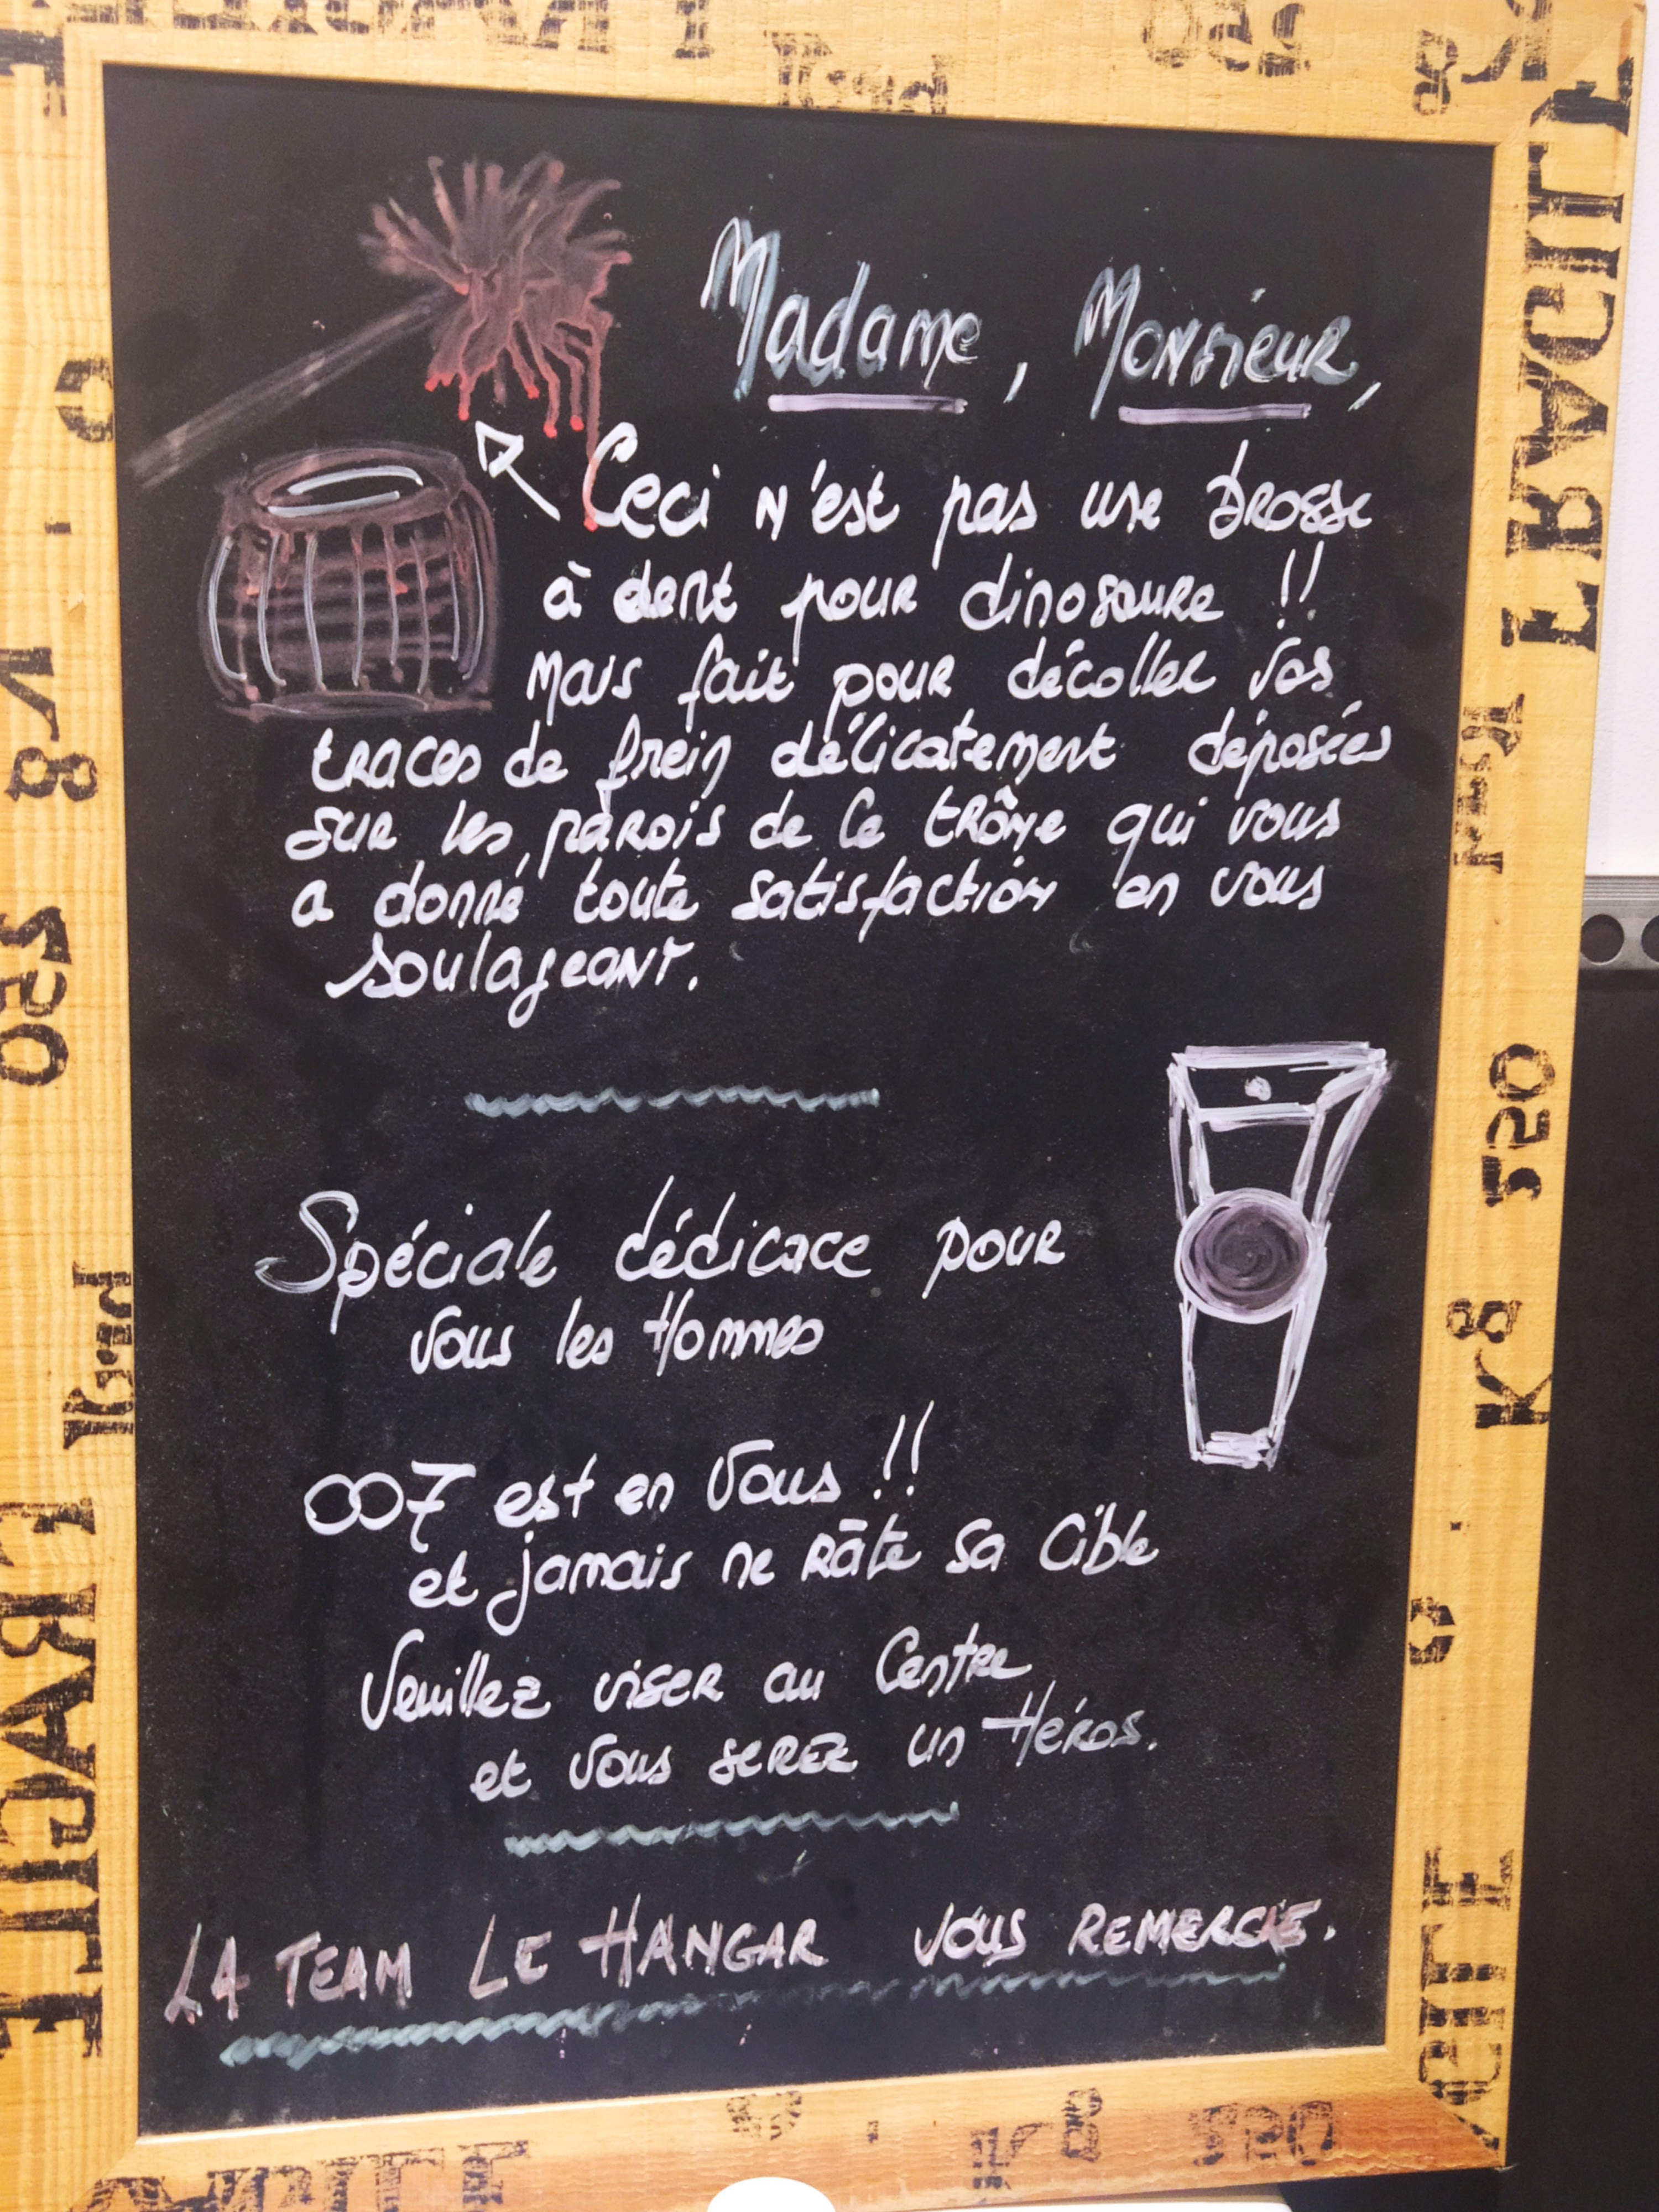 Madame, Monsieur,
Ceci n'est pas une brosse
à dent pour dinosaure !!
Mais fait pour décoller vos
traces de frein délicatement déposées
sur les parois de le trône qui vous
a donné toute satisfaction en vous
soulageant.
Spéciale dédicace pour
vous les Hommes
007 est en vous !!
et jamais ne râte sa cible
Veuillez viser au Centre
et vous serez un Héros.
LA TEAM LE HANGAR VOUS REMERCIE.
FRAGILE
K8 520
FRAGILE
K8 520